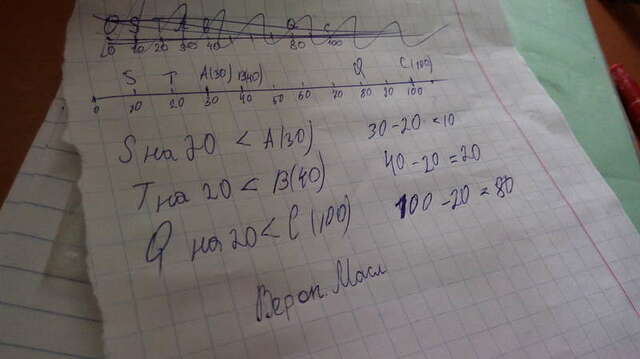 S T A(30) B(40) Q C(100)
0 10 20 30 40 50 60 70 80 90 100
S на 20 < A(30) 30-20=10
T на 20 < B(40) 40-20=20
Q на 20 < C(100) 100-20=80
Верон. Масл